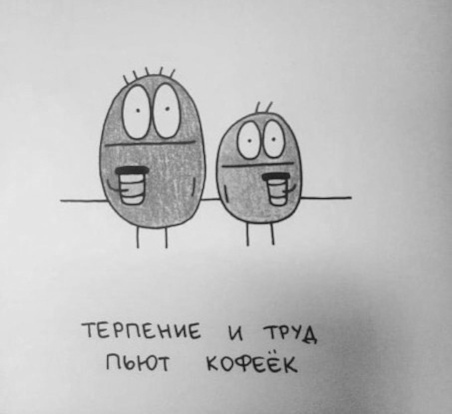 ТЕРПЕНИЕ И ТРУД
ПЬЮТ КОФЕЁК